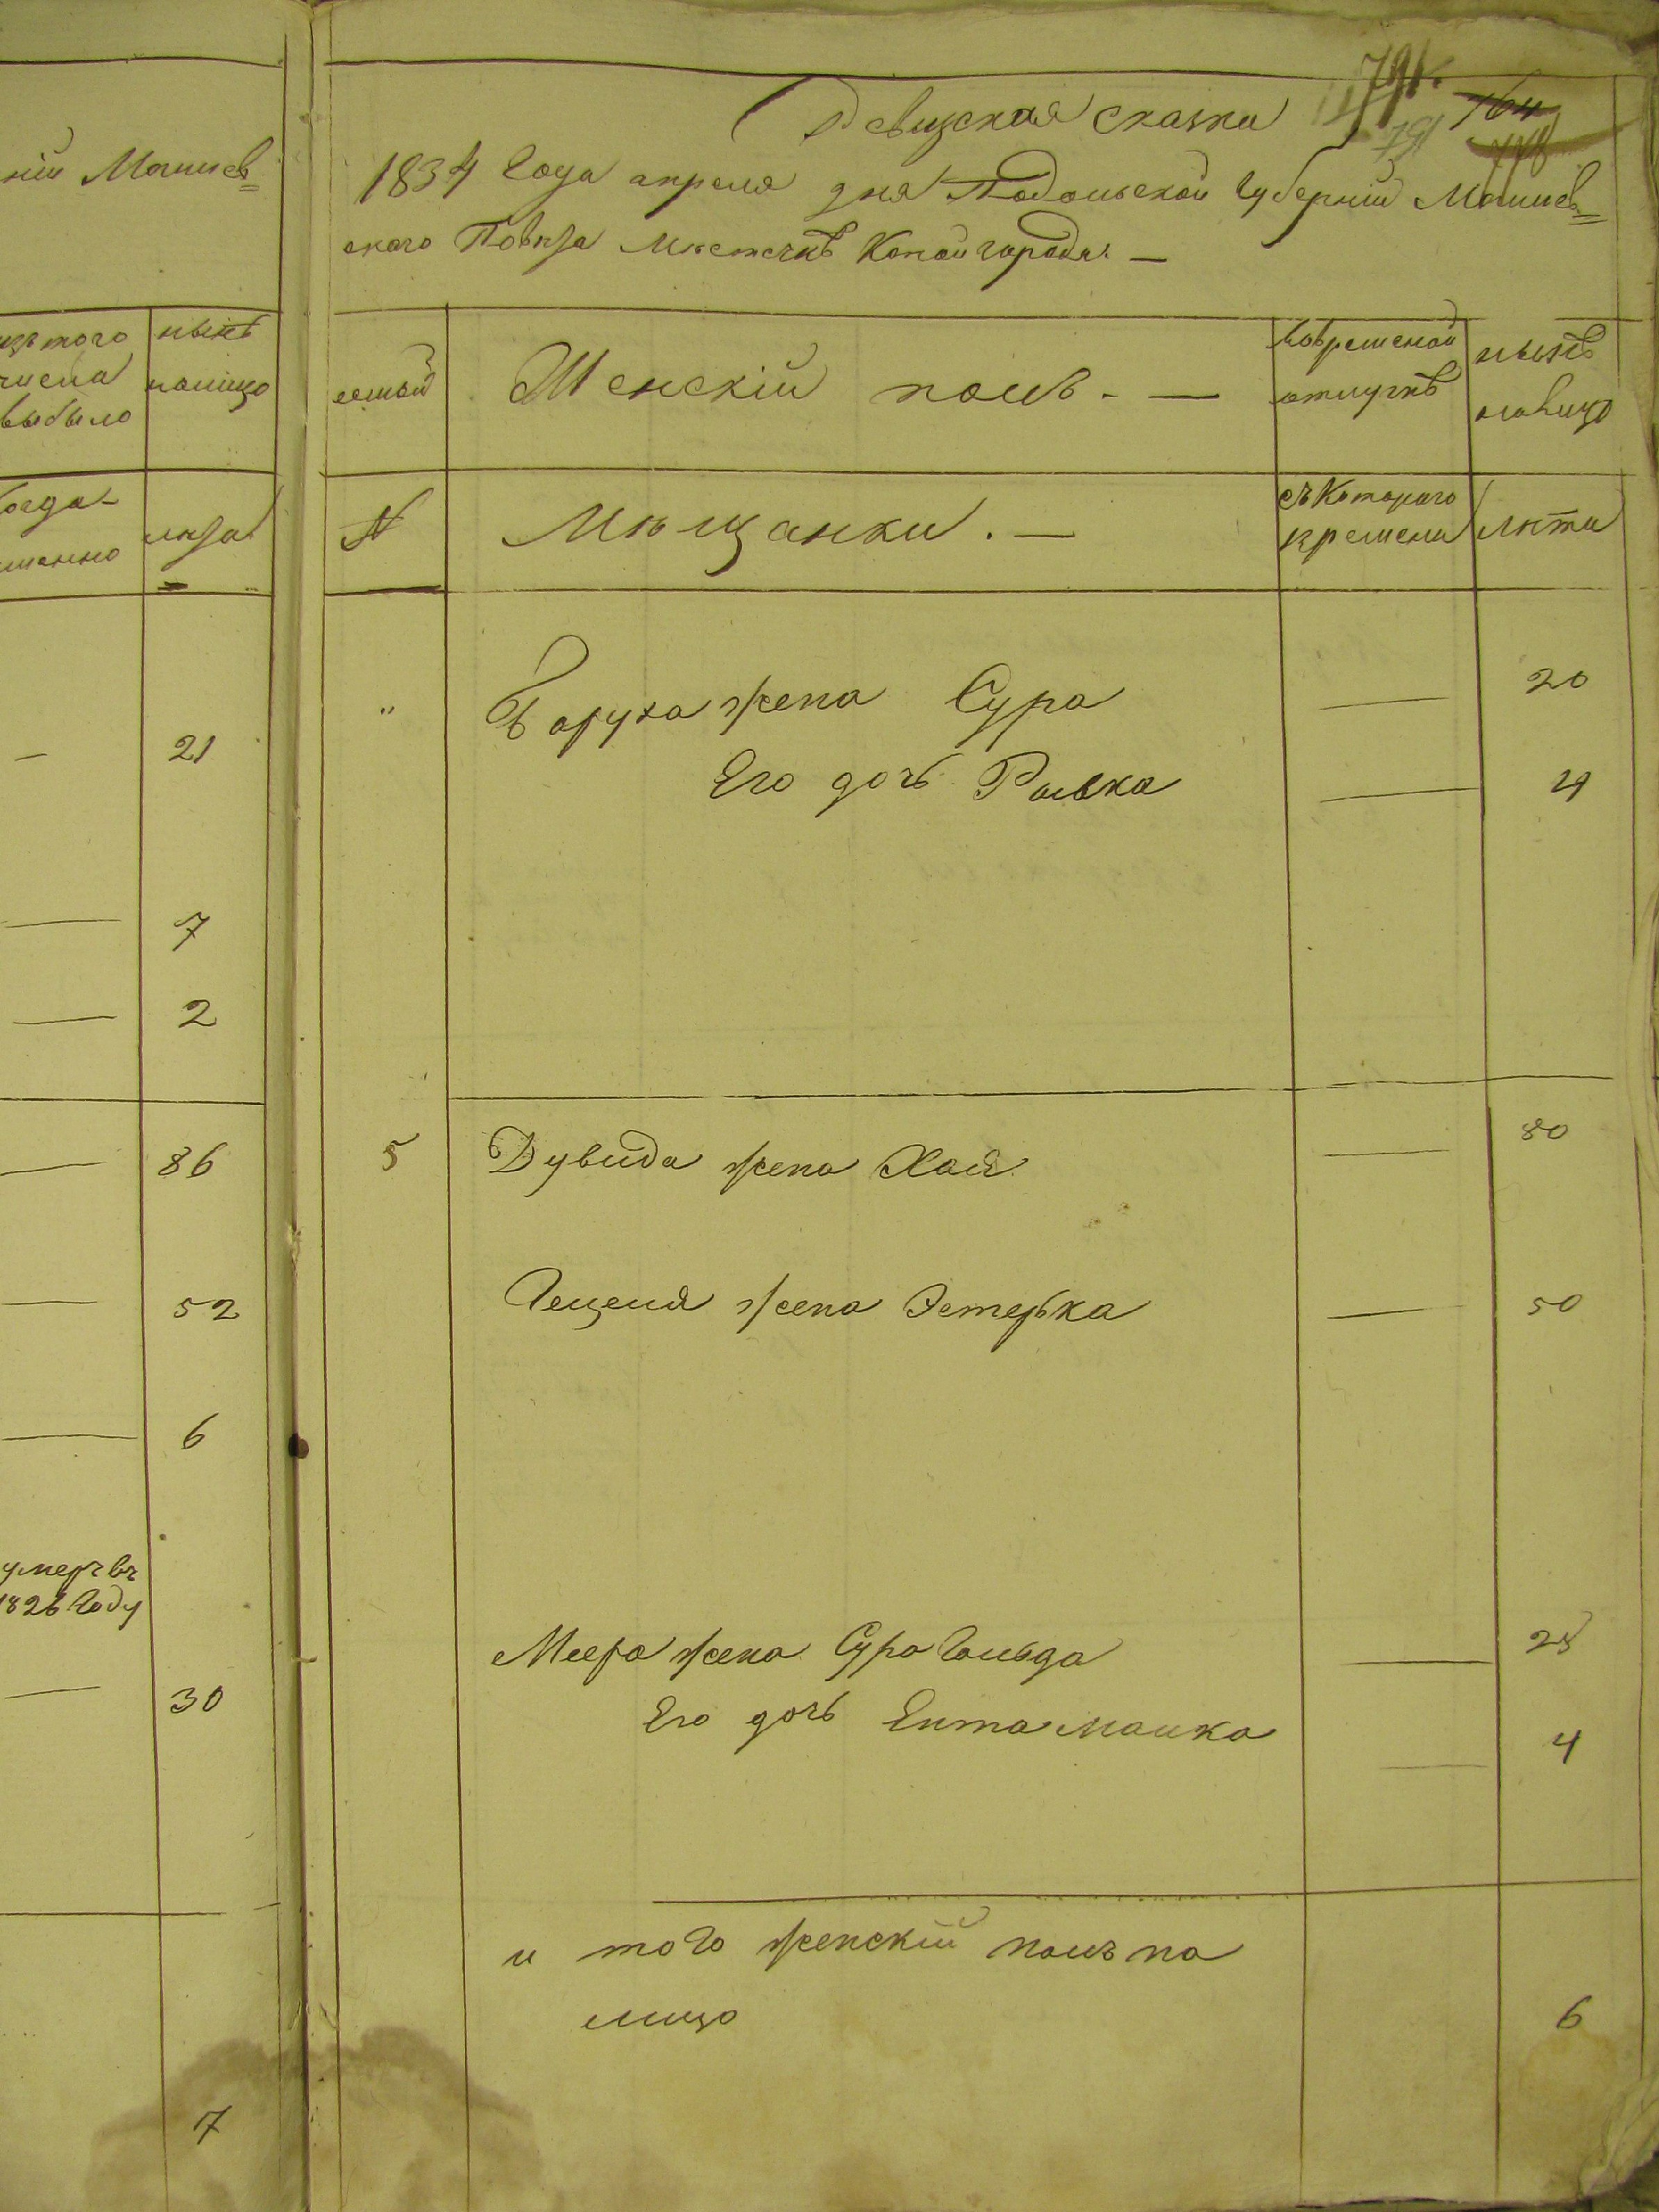 ній Могилев=
изъ того
числа
выбыло
нынѣ
налицо
Когда
именно
лѣта
21
7
2
86
52
6
умеръ въ
1826 году
30
7
791.
164
Ревизская сказка
1834 Года апреля дня Подольской Губерній Могилев=
скаго Повѣта Мѣстечкѣ Копайгорода. —
семьи
Женскій полъ. —
вовременой
отлучкѣ
нынѣ
налицо
N
Мѣщанки. —
съ Котораго
времени
лѣта
" Боруха жена Сура — 20
Его дочь Ривка — 4
5 Дувида жена Хая — 80
жена Эстерка — 50
Меера жена Сура Гольда — 25
Его дочь Ента Малка — 4
и того женскій полъ на
лицо 6